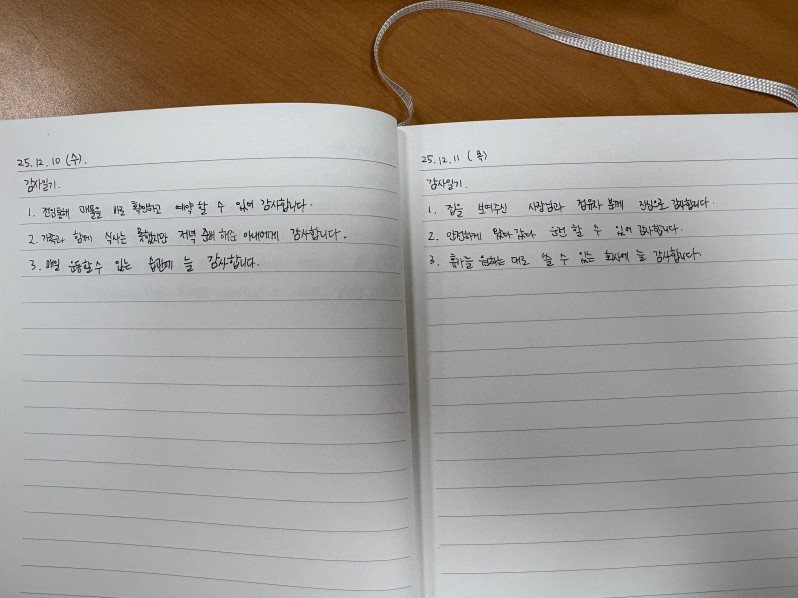 25.12.10 (수).
감사일기.
1. 전임통해 매물을 바로 확인하고 예약 할 수 있어 감사합니다.
2. 가족과 함께 식사는 못했지만 저녁 준비 해준 아내에게 감사합니다.
3. 매일 운동할 수 있는 습관에 늘 감사합니다.
25.12.11 (목)
감사일기.
1. 집을 보여주신 사장님과 점유자 분께 진심으로 감사합니다.
2. 안전하게 왔다 갔다 운전 할 수 있어 감사합니다.
3. 휴가를 원하는 대로 쓸 수 있는 회사에 늘 감사합니다.